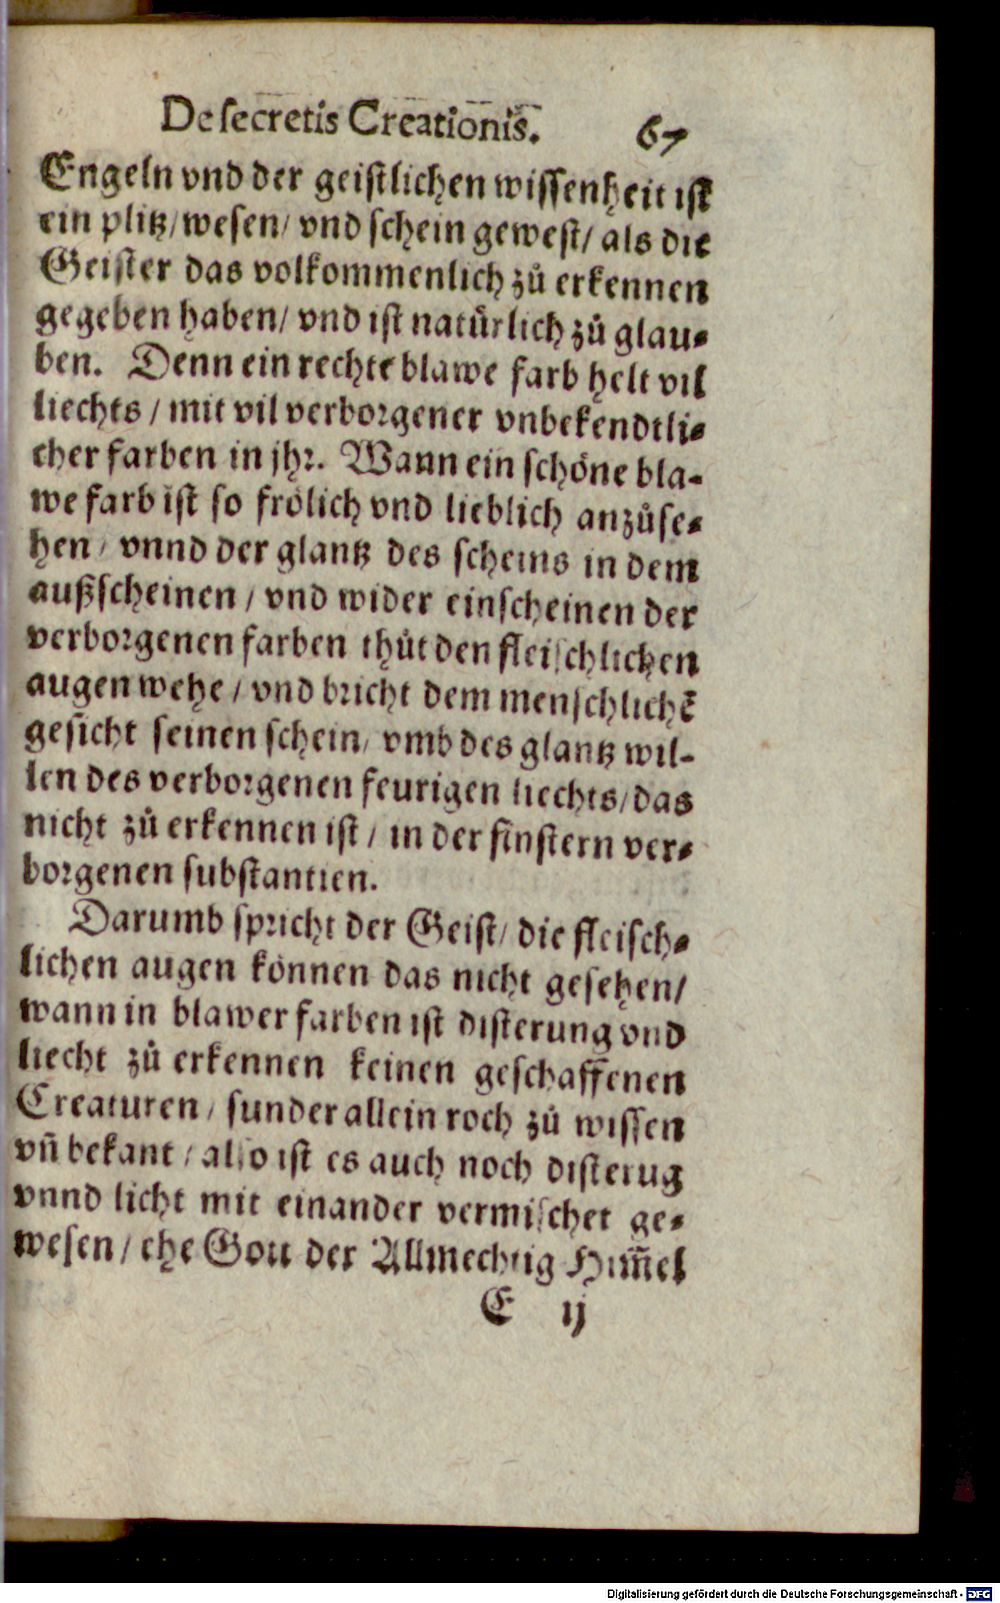 De secretis Creationis. 67
Engeln vnd der geistlichen wissenheit ist
ein plitz/wesen/ vnd schein gewest/ als die
Geister das volkommenlich zů erkennen
gegeben haben/ vnd ist natůrlich zů glau-
ben. Denn ein rechte blawe farb helt vil
liechts / mit vil verborgener vnbekendtli-
cher farben in jhr. Wann ein schöne bla-
we farb ist so frölich vnd lieblich anzůse-
hen / vnnd der glantz des scheins in dem
außscheinen / vnd wider einscheinen der
verborgenen farben thůt den fleischlichen
augen wehe / vnd bricht dem menschlichē
gesicht seinen schein/ vmb des glantz wil-
len des verborgenen feurigen liechts/das
nicht zů erkennen ist / in der finstern ver-
borgenen substantien.
Darumb spricht der Geist/ die fleisch-
lichen augen können das nicht gesehen/
wann in blawer farben ist disterung vnd
liecht zů erkennen keinen geschaffenen
Creaturen / sunder allein roch zů wissen
vñ bekant / also ist es auch noch disterug
vnnd licht mit einander vermischet ge-
wesen / ehe Gott der Allmechtig Him̄el
E ij
Digitalisierung gefördert durch die Deutsche Forschungsgemeinschaft - DFG